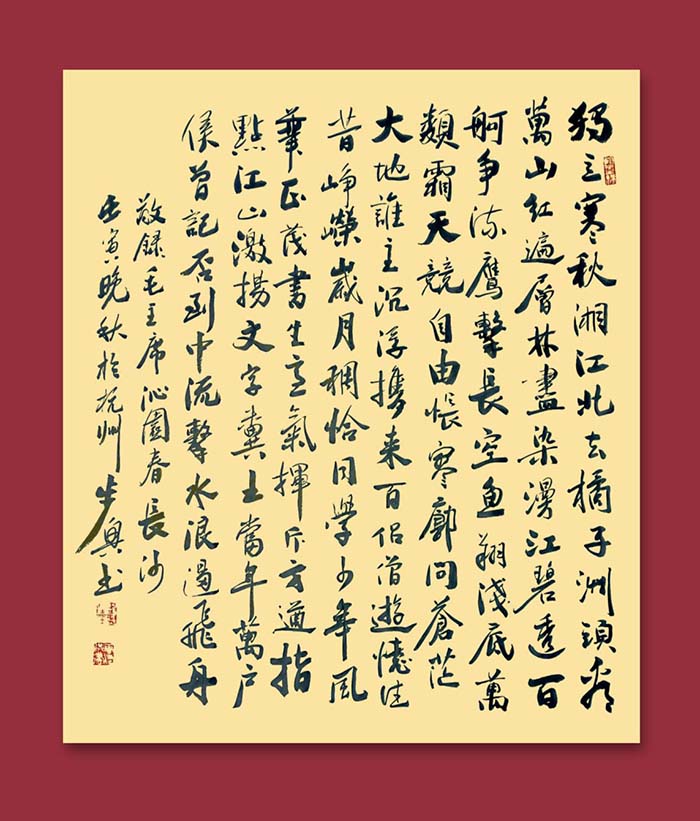 獨立寒秋湘江北去橘子洲頭看
萬山紅遍層林盡染漫江碧透百
舸争流鷹擊長空魚翔淺底萬
類霜天競自由悵寥廓問蒼茫
大地誰主沉浮攜来百侣僧遊憶往
昔峥嶸歲月稠恰同學少年風
華正茂書生意氣揮斥方遒指
點江山激揚文字糞土當年萬户
侯曾記否到中流擊水浪遏飛舟
敬録毛主席沁園春長沙
壬寅晚秋於杭州興书